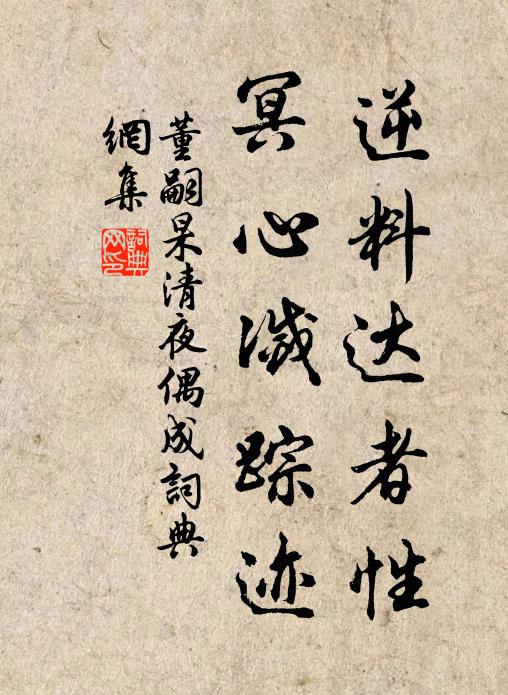 逆料达者性
冥心滅踪迹
董嗣杲清夜偶成詞典
網集
詞典
网印